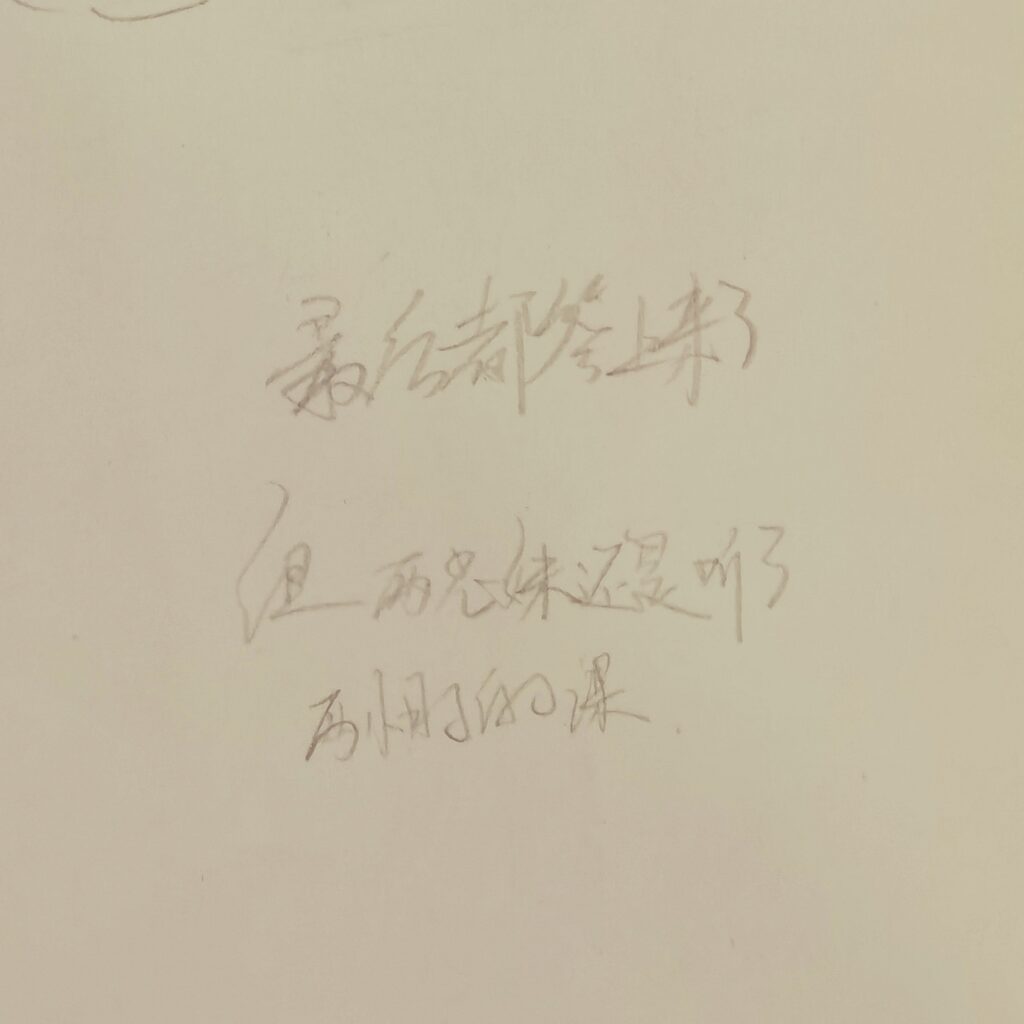 最后都答上来了
但两兄妹还是听了
两小时的课.